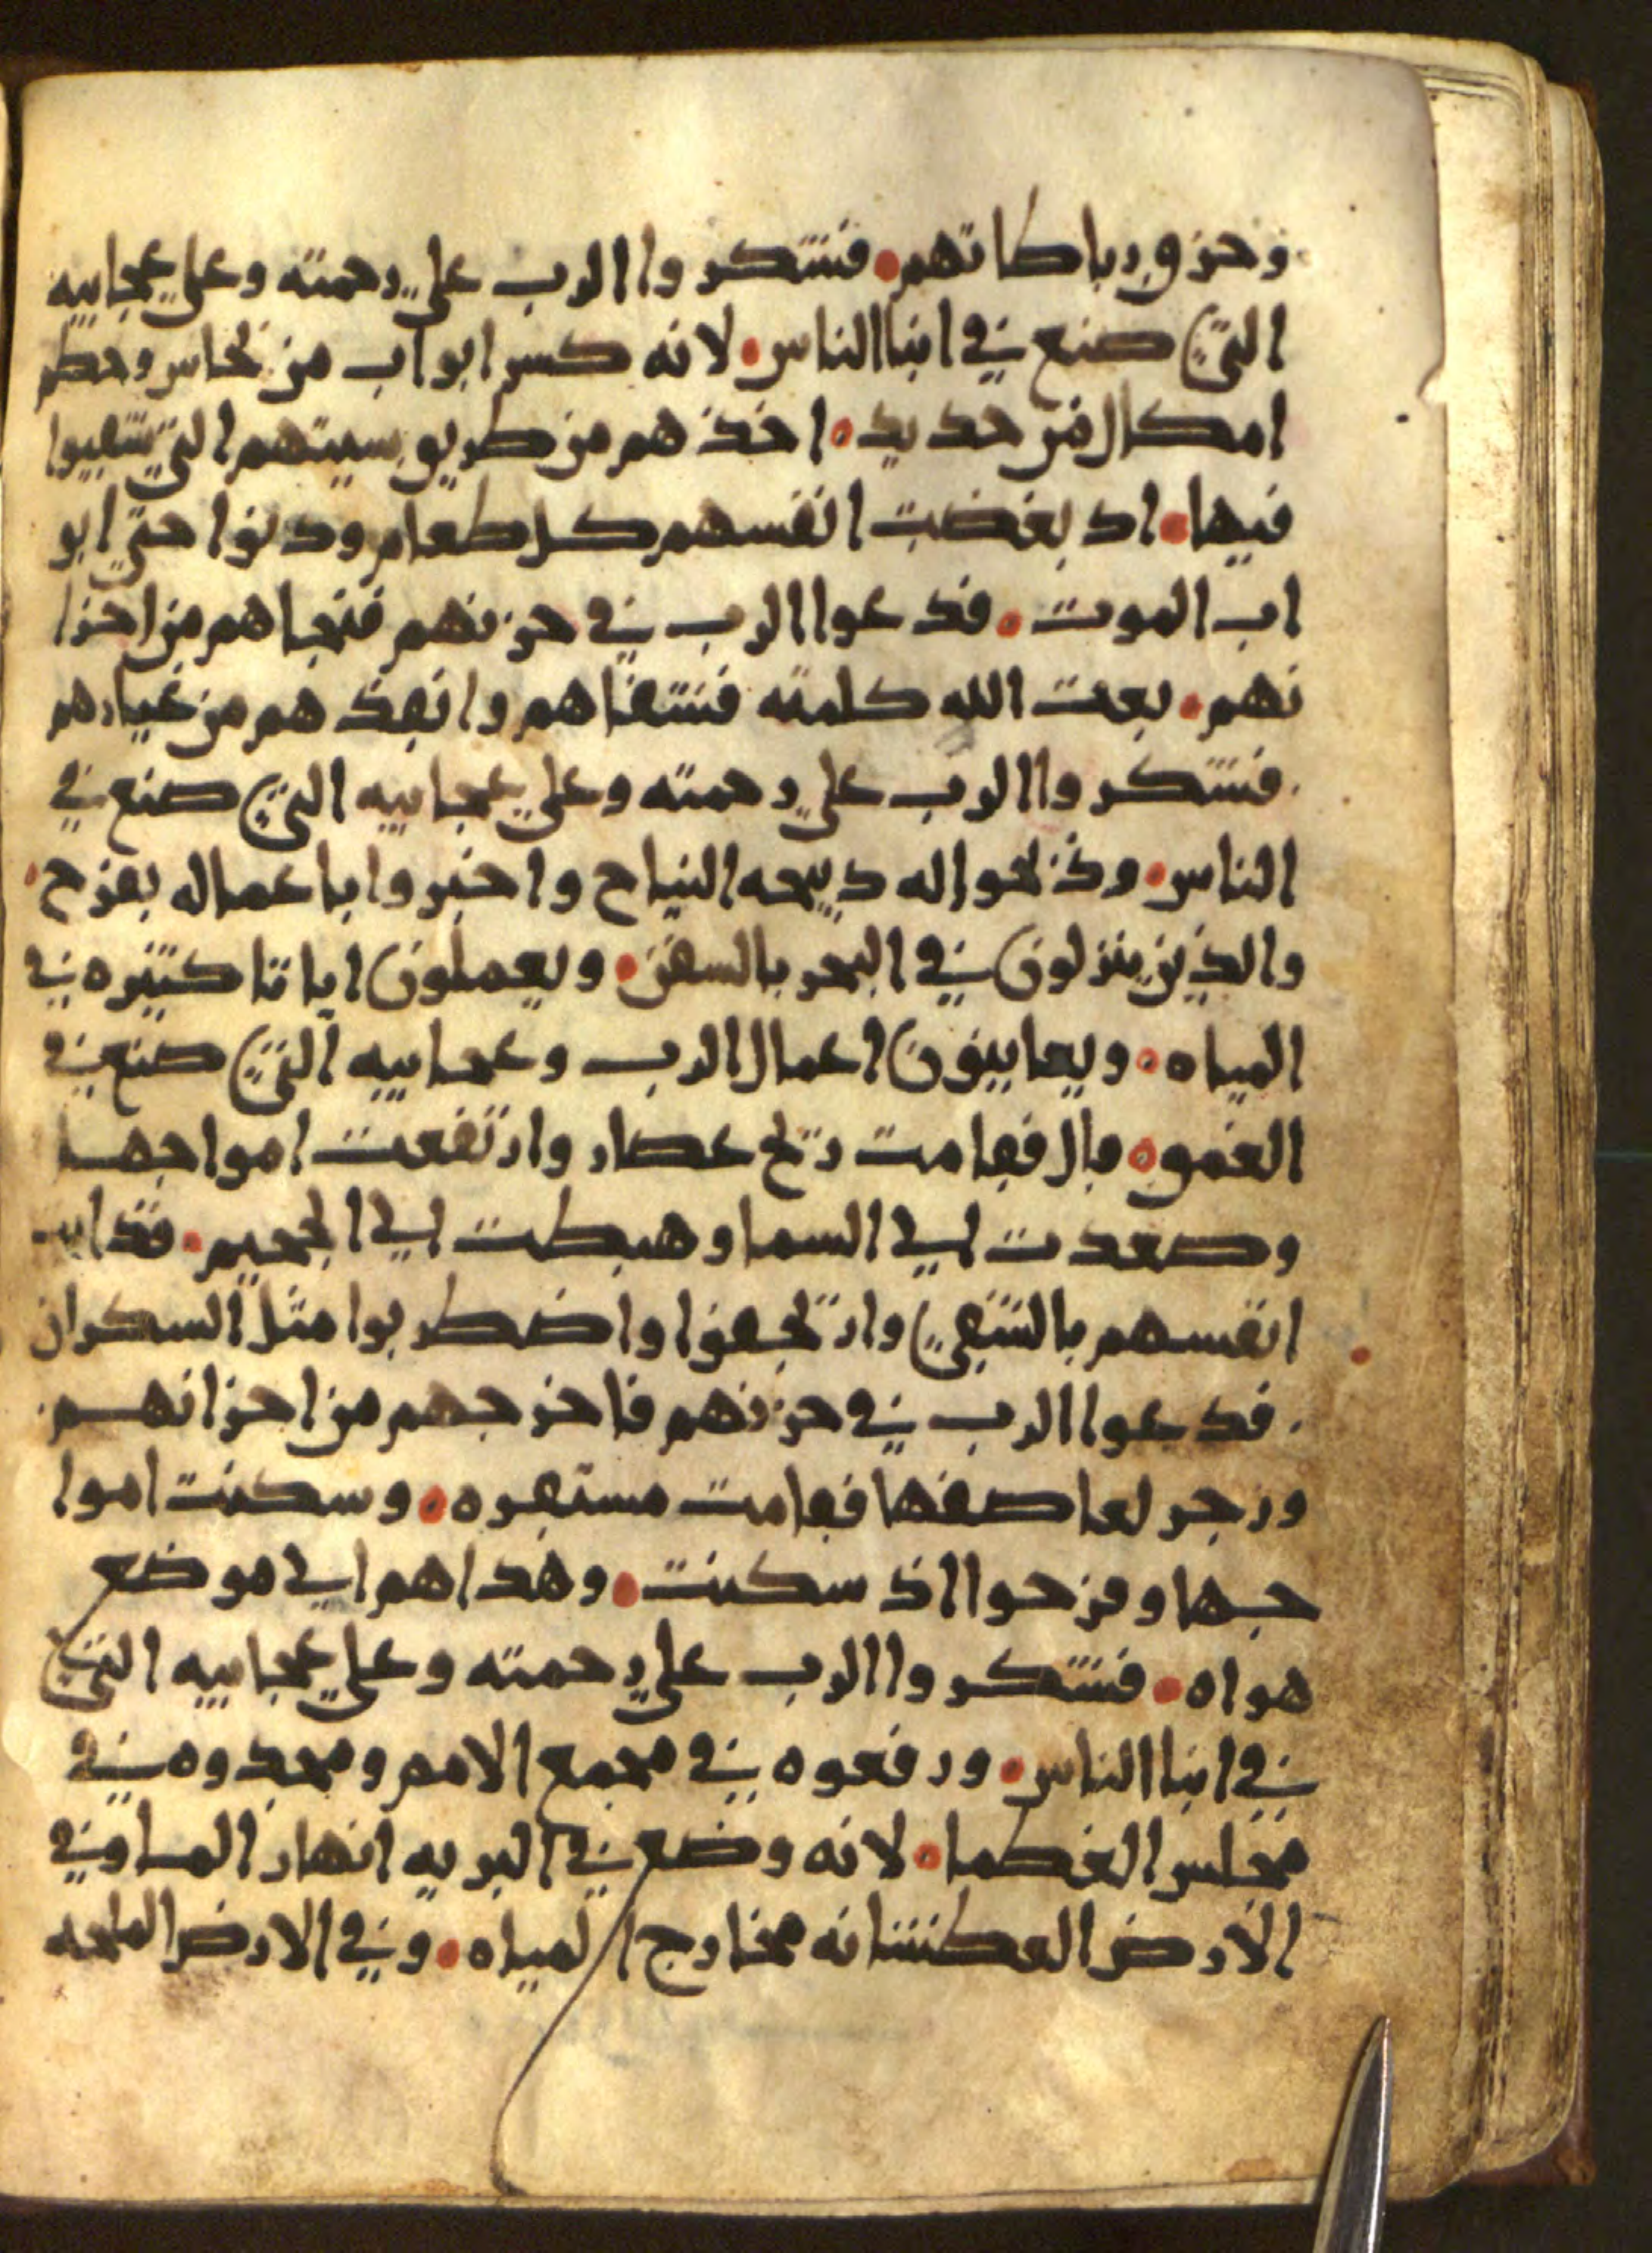 وخرق رباطاتهم • فتشكروا الرب علي رحمته وعلي عجايبه
التي صنع في ابنا الناس • لانه كسر ابواب من نحاس وحطم
امكال من حديد • اخذهم من طريق سيتهم التي شقيوا
فيها • اد بغضت انفسهم كل طعام ودنوا حتي ابو
اب الموت • فدعوا الرب في حزنهم فنجاهم من احزا
نهم • بعت الله كلمته فشفاهم وانقذهم من غيارهم
فتشكروا الرب علي رحمته وعلي عجايبه التي صنع في
الناس • وذبحوا له دبيحه النياح واخبروا باعماله بفرح •
والذين ينزلون في البحر بالسفن • ويعملون اياتا كتيره في
المياه • ويعاينون اعمال الرب وعجايبه التي صنع في
الغموق • قال فقامت ريح عصار وارتفعت امواجها
وصعدت الي السما وهبطت الي الجحيم • فذابت
انفسهم بالشقي وارتجفوا واضطربوا مثل السكران
فدعوا الرب في حزنهم فاخرجهم من احزانهم
وزجر لعاصفها فقامت مستقره • وسكنت اموا
جها وفرحوا اذ سكنت • وهداهم الي موضع
هواه • فتشكروا الرب علي رحمته وعلي عجايبه التي
في ابنا الناس • ورفعوه في مجمع الامم ومجدوه في
مجلس العظما • لانه وضع في البريه انهار الما وفي
الارض العطشانه مخارج المياه • وفي الارض الملحه